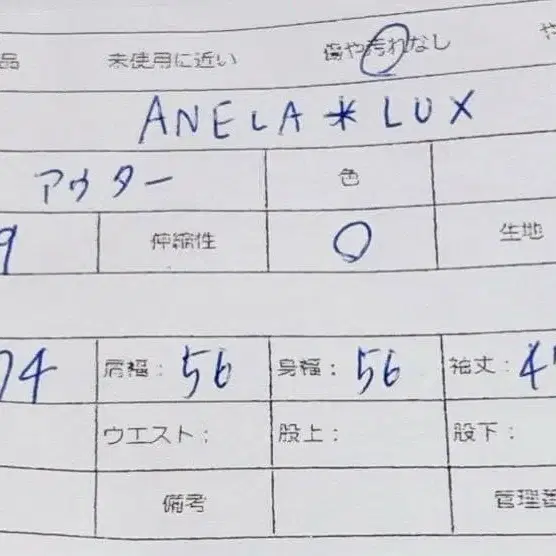 品 未使用に近い 傷や汚れなし や
ANELA*LUX
アウター 色
9 伸縮性 〇 生地
74 肩幅: 56 身幅: 56 袖丈: 4
ウエスト: 股上: 股下:
備考 管理番